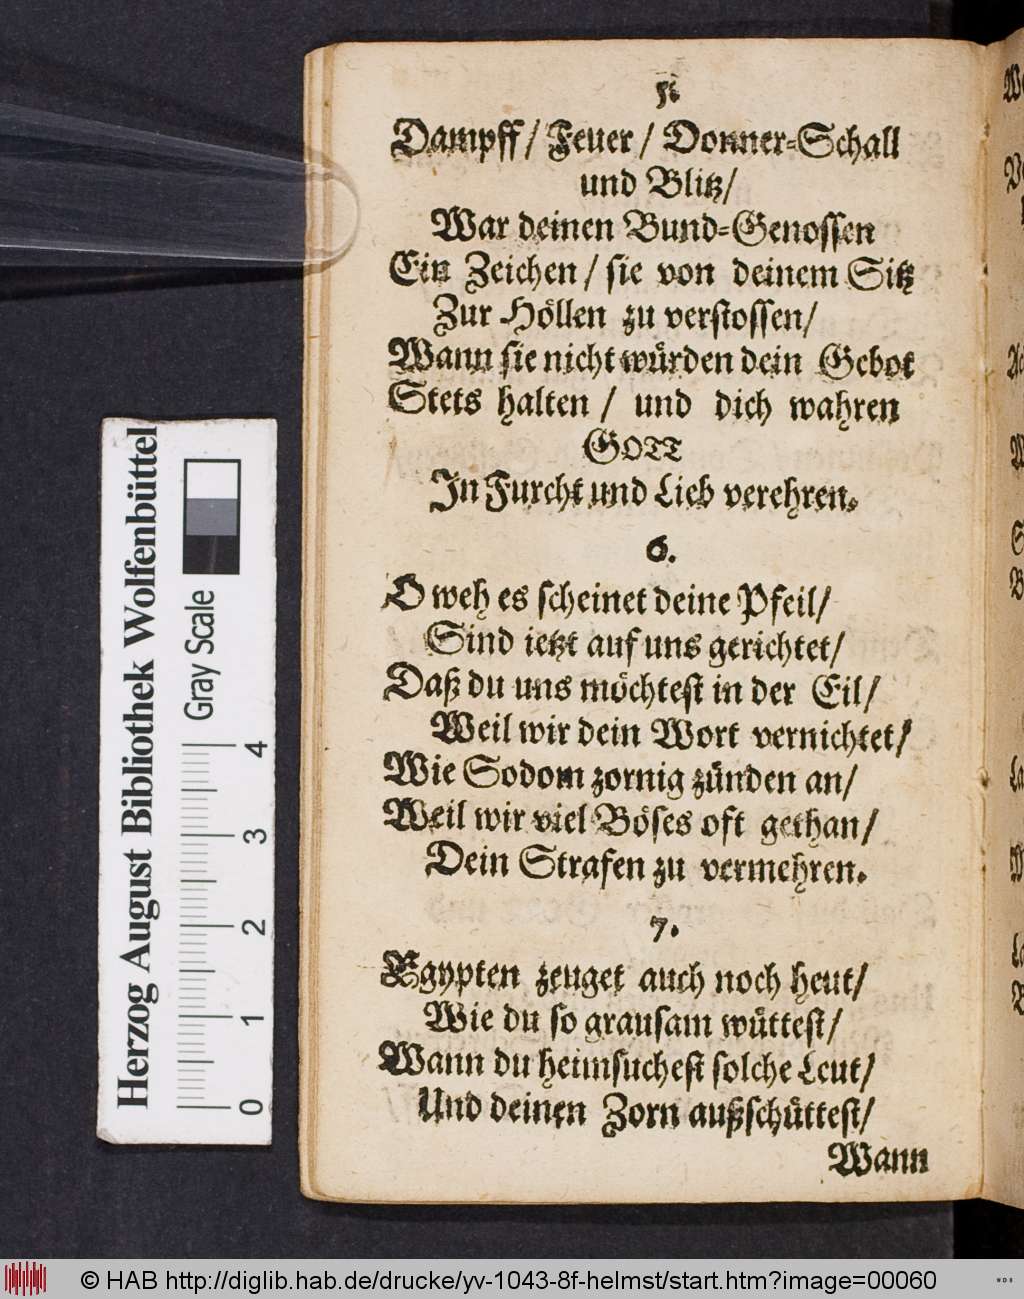 5.
Dampff / Feuer / Donner-Schall
und Blitz /
War deinen Bund-Genossen
Ein Zeichen / sie von deinem Sitz
Zur Höllen zu verstossen /
Wann sie nicht würden dein Gebot
Stets halten / und dich wahren
GOTT
In Furcht und Lieb verehren.
6.
O weh es scheinet deine Pfeil /
Sind ietzt auf uns gerichtet /
Daß du uns möchtest in der Eil /
Weil wir dein Wort vernichtet /
Wie Sodom zornig zünden an /
Weil wir viel Böses oft gethan /
Dein Strafen zu vermehren.
7.
Egypten zeuget auch noch heut /
Wie du so grausam wüttest /
Wann du heimsuchest solche Leut /
Und deinen Zorn außschüttest /
Wann
Herzog August Bibliothek Wolfenbüttel
Gray Scale
0 1 2 3 4
© HAB http://diglib.hab.de/drucke/yv-1043-8f-helmst/start.htm?image=00060